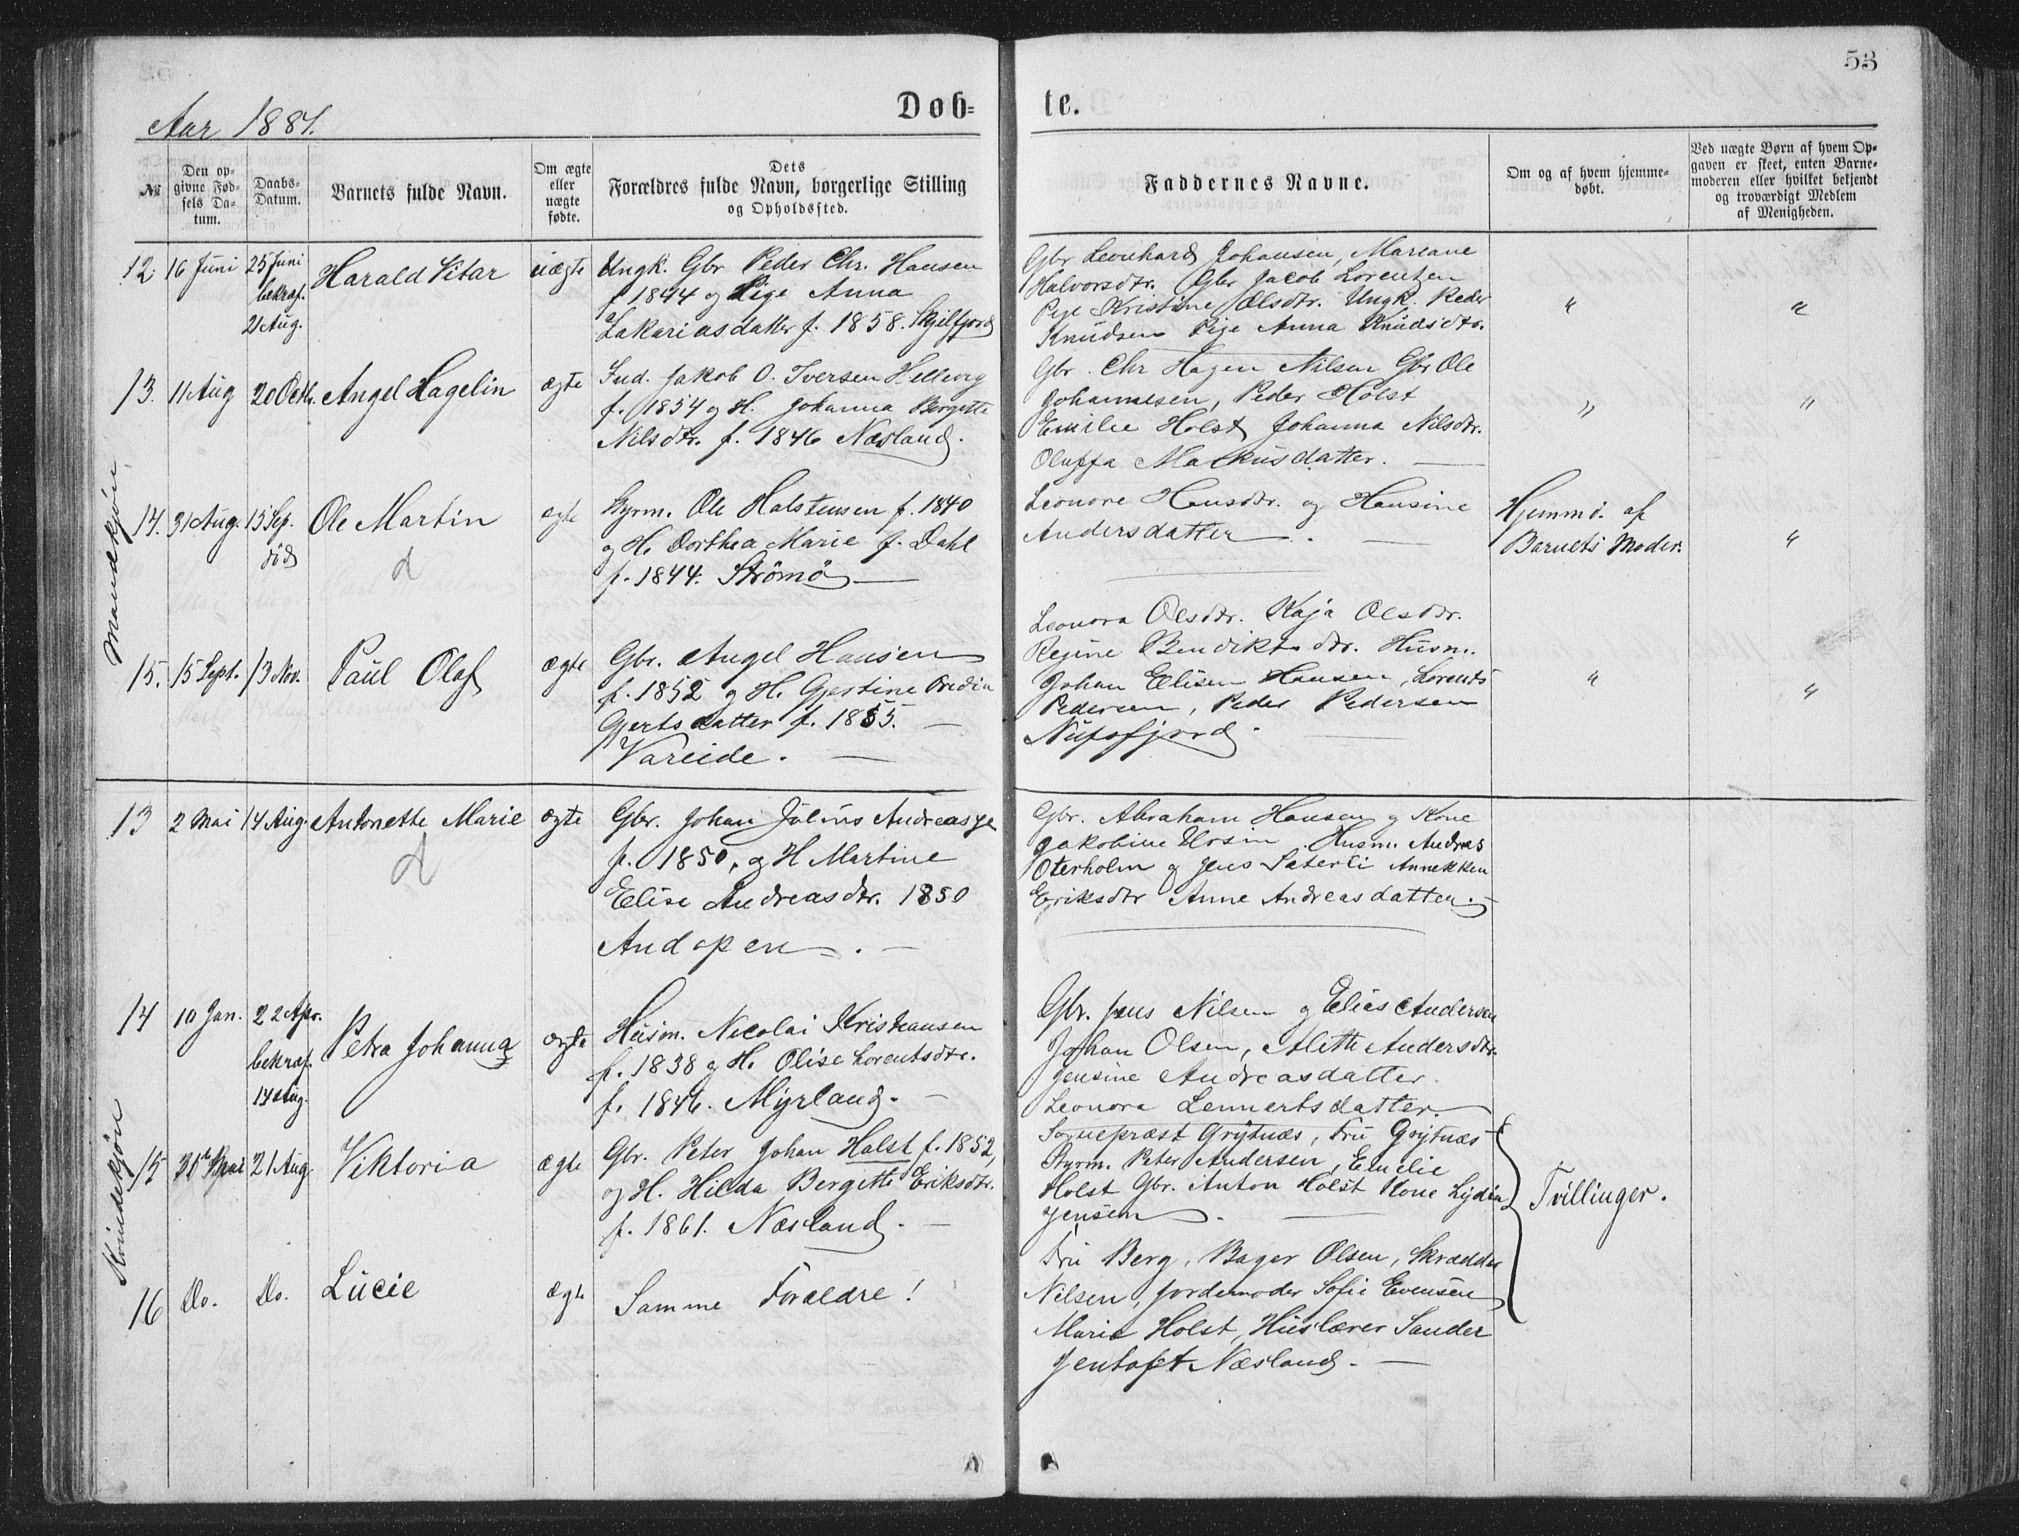 53
Aar 1881.
Døb-
te.
№
Den op-
givne Fød-
sels Da-
tum.
Daabs-
Datum.
Barnets fulde Navn.
Om ægte
eller
uægte
fødte.
Dets
Forældres fulde Navn, borgerlige Stilling
og Opholdssted.
Faddernes Navne.
Om og af hvem hjemme-
døbt.
Ved uægte Børn af hvem Op-
gaven er skeet, enten Barne-
moderen eller hvilket bekjendt
og troværdigt Medlem
af Menigheden.
Mandkjön
12. 16 Juni
25 Juni
bekræf.
21 Aug.
Harald Vitar
uægte
Ungk. Gbr Peder Chr. Hansen
f 1844 og Pige Anna
Zakariasdatter f. 1858. Skjelfjord
Gbr Leonhard Johansen, Mareane
Halvorsdtr. Gbr Jacob Lorentzen
Pige Kristine Olsdtr. Ungk. Peder
Knudsen Pige Anna Knudsdtr.
"
"
13. 11 Aug 20 Octb. Angel Hagelin
ægte
Ind. Jakob O. Iversen Hellevig
f. 1854 og H. Johanna Bergitte
Nilsdtr. f. 1846 Næsland.
Gbr. Chr Hagen Nilsen Gbr Ole
Johannesen, Peder Holst
Emilie Holst Johanna Nilsdtr.
Oluffa Markusdatter.
"
"
14. 31 Aug. 15 Sep.
død
Ole Martin
d
ægte
Styrm. Ole Halstensen f. 1840
og H. Dorthea Marie f. Dahl
f. 1844. Strömö
Leonore Hansdtr. og Hansine
Andersdatter.
Hjemmd. af
Barnets Moder.
"
15. 15 Sept. 13 Nov. Paul Olaf
ægte
Gbr. Angel Hansen
f. 1852 og H. Gjertine Predia
Gjertsdatter f. 1855.
Vareide.
Leonora Olsdtr. Kaja Olsdtr.
Regine Bendiktsdtr. Husm.
Johan Elisen Hansen, Lorents
Pedersen, Peder Pedersen
Nufsfjord.
"
"
Kvindekjön
13 2 Mai 14 Aug. Antonette Marie
d
ægte
Gbr. Johan Julius Andreasse
f. 1850, og H Martine
Elise Andreasdtr. 1850
Andopen.
Gbr. Abraham Hansen og Kone
Jakobine Ursin. Husm. Andreas
Oterholm og Jens Sæterli Annekken
Eriksdtr Anne Andreasdatter.
14 10 Jan. 22 Apr.
bekræf.
14 Aug.
Petra Johanna
ægte
Husm. Nicolai Kristiansen
f. 1838 og H. Olise Lorentsdtr.
f. 1846. Myrland.
Gbr. Jens Nilsen og Elias Andersen
Johan Olsen, Alette Andersdtr.
Jensine Andreasdatter.
Leonora Lennertsdatter.
15 31te Mai 21 Aug. Viktoria
ægte
Gbr. Peter Johan Holst f. 1852,
og H. Hilda Bergette Eriksdtr.
f. 1861. Næsland.
Sognepræst Grytnæs, Fru Grytnæs
Styrm. Peter Andersen, Emelie
Holst Gbr. Anton Holst Kone Lydia
Jensen.
Tvillinger.
16 Do. Do. Lucie
ægte
Samme Forældre!
Fru Berg, Bager Olsen, Skrædder
Nilsen, Jordemoder Sofie Evensen
Marie Holst, Huslærer Sander
Jentoft Næsland.